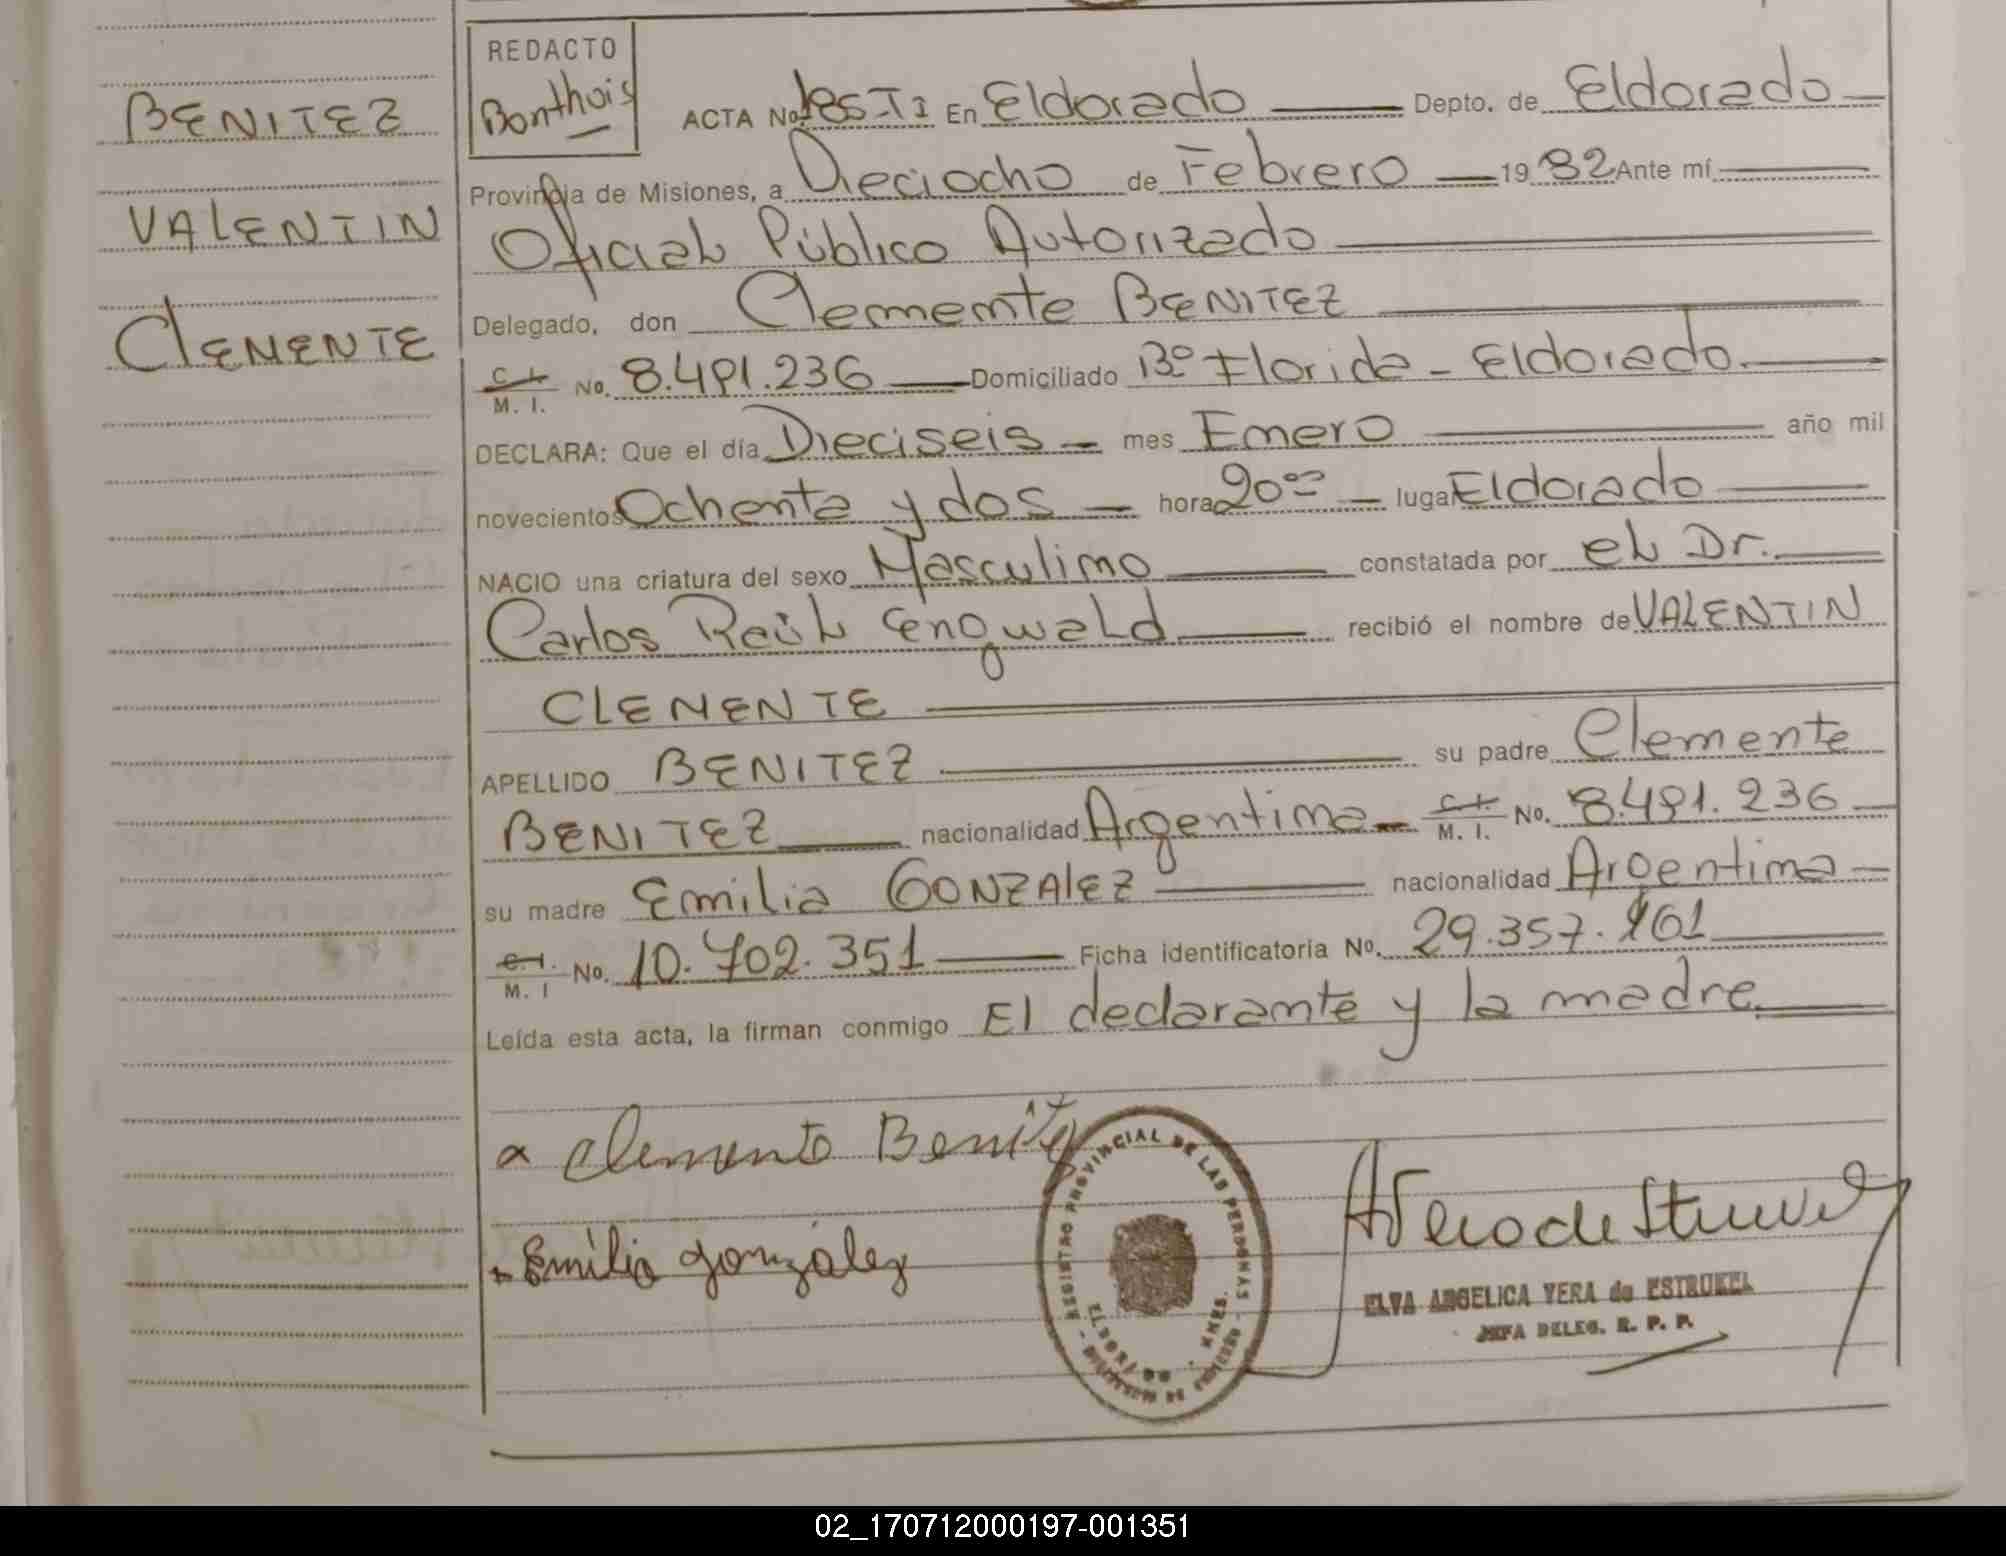 BENITEZ
VALENTIN
CLEMENTE
REDACTO
Bonthuis
ACTA No. 185-TI En Eldorado Depto. de Eldorado
Provincia de Misiones, a Dieciocho de Febrero 1982 Ante mí
Oficial Público Autorizado
Delegado, don Clemente BENITEZ
C. I. M. I. No. 8.491.236 Domiciliado Bº Florida - Eldorado.
DECLARA: Que el día Dieciseis mes Enero año mil
novecientos Ochenta y dos hora 20°° lugar Eldorado
NACIO una criatura del sexo Masculino constatada por el Dr.
Carlos Raúl Engwald recibió el nombre de VALENTIN
CLEMENTE
APELLIDO BENITEZ su padre Clemente
BENITEZ nacionalidad Argentina C. I. M. I. No. 8.491.236
su madre Emilia GONZALEZ nacionalidad Argentina
C. I. M. I No. 10.702.351 Ficha identificatoria No. 29.357.161
Leída esta acta, la firman conmigo El declarante y la madre
Clemente Benitez
Emilia González
REGISTRO PROVINCIAL DE LAS PERSONAS
ELDORADO - MNES.
ELVA ANGELICA VERA de ESTRUKEL
JEFA DELEG. R. P. P.
02_170712000197-001351